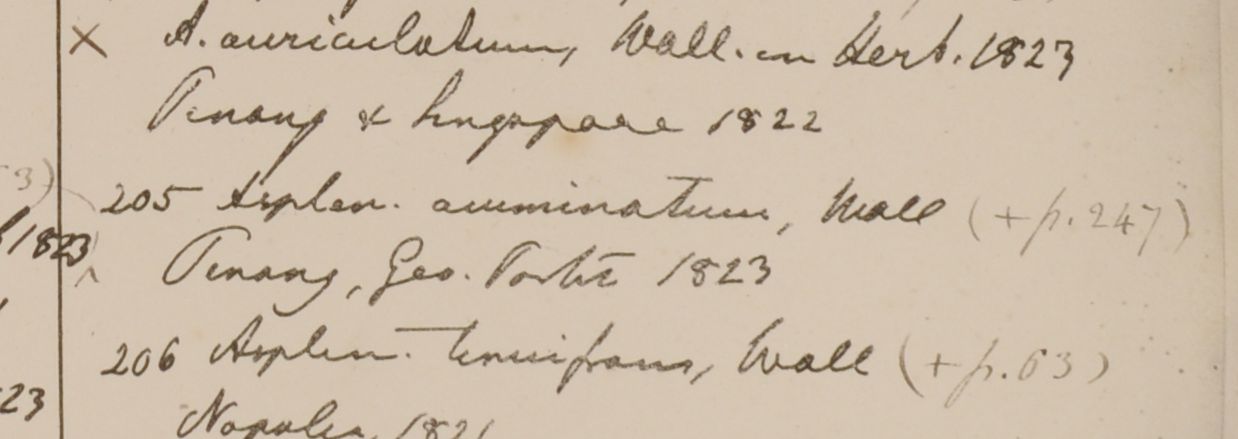 × A. auriculatum, Wall. in Herb. 1823
Penang & Singapore 1822
3)
205 Asplen. acuminatum, Wall (+ p. 247)
1823
Penang, Geo. Porter 1823
206 Asplen. tenuifrons, Wall (+ p. 63)
23
Napalia 1821